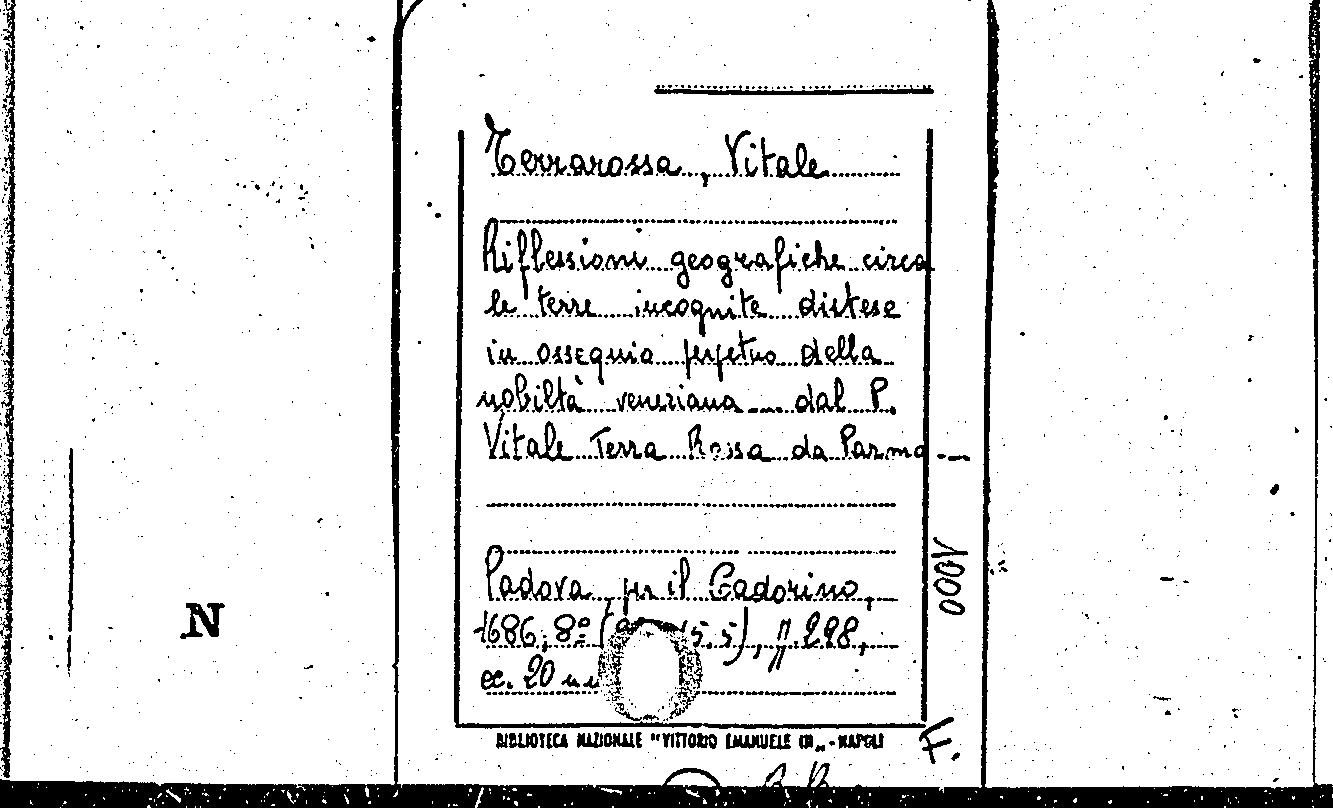 Terrarossa, Vitale
Riflessioni geografiche circa
le terre incognite distese
in ossequio perpetuo della
nobiltà veneziana ... dal P.
Vitale Terra Rossa da Parma ...
Padova, per il Cadorino,
1686, 8º ( 15,5), pp. 298,
cc. 20 nn
BIBLIOTECA NAZIONALE "VITTORIO EMANUELE III" - NAPOLI
1000
F.
N